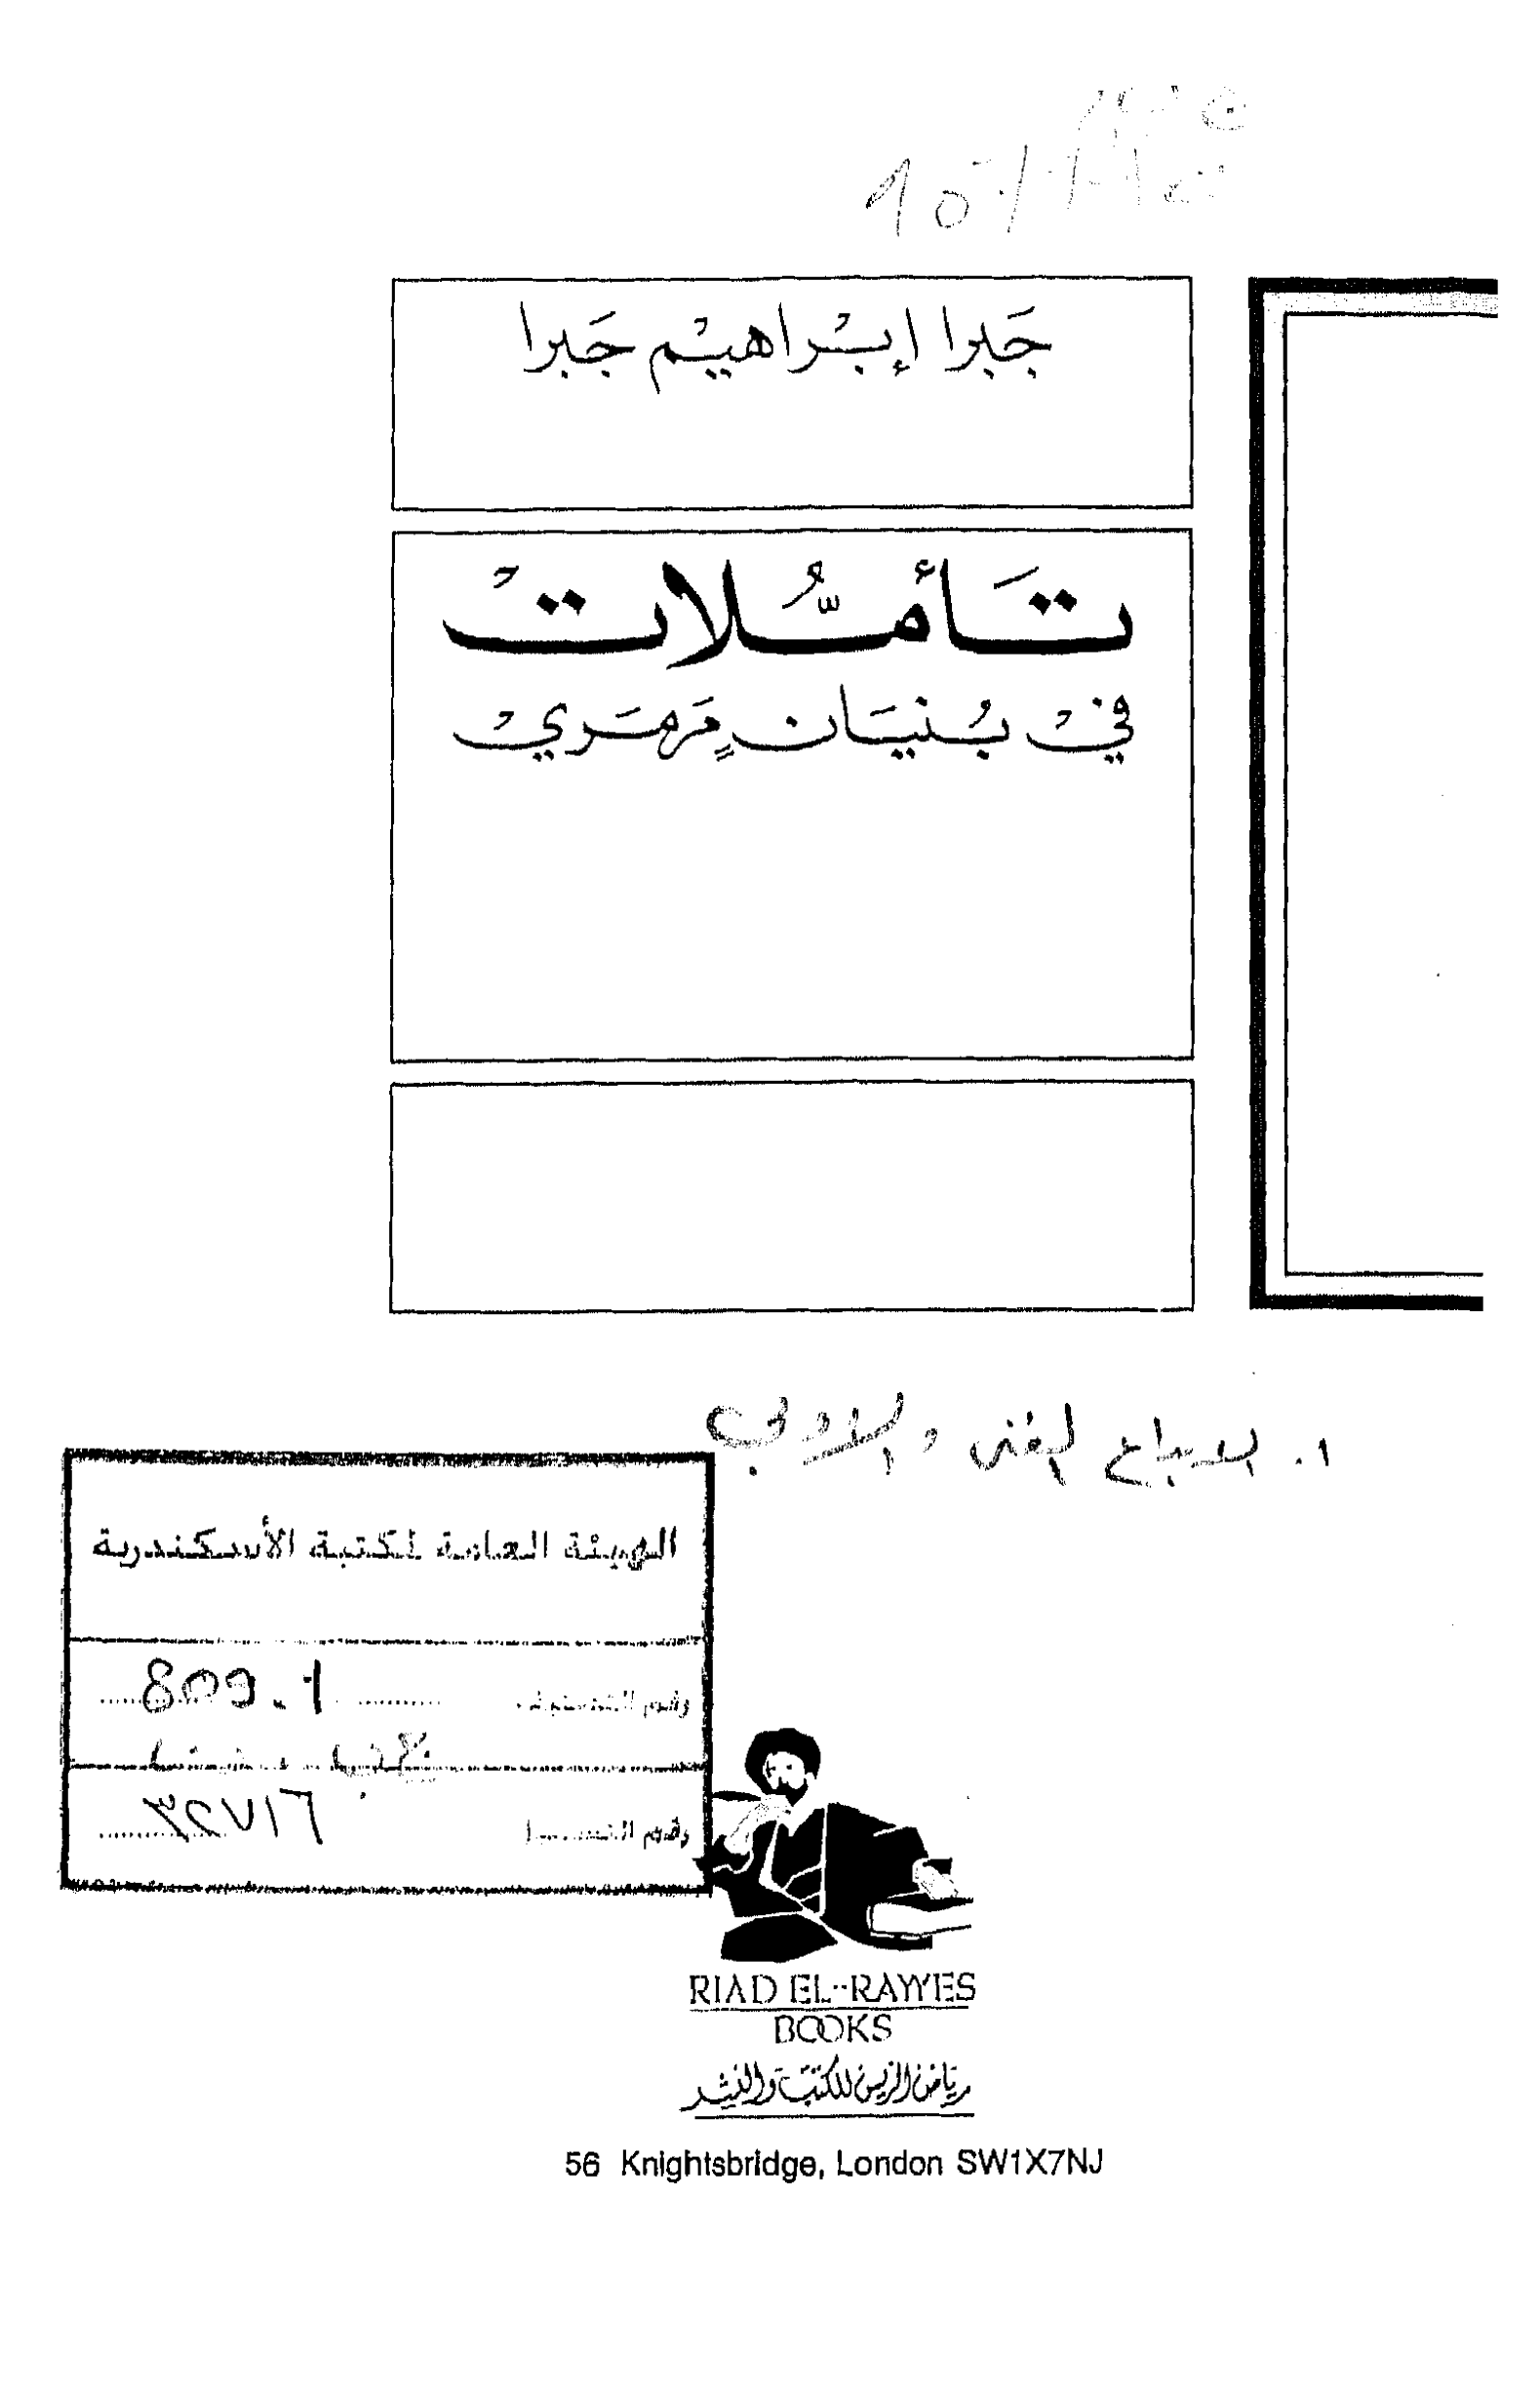 جَبرا إبْراهيْم جَبرا
تَأمُّلاتْ
فيْ بُنيَانٍ مَرمَريْ
١. الابداع الفنى والادبي
الهيئة العامة لمكتبة الأسكندرية
رقم التصنيف 809.1
رقم التسجيل ٣٢٧١٦
RIAD EL-RAYYES
BOOKS
رياض الريس للكتب والنشر
56 Knightsbridge, London SW1X7NJ